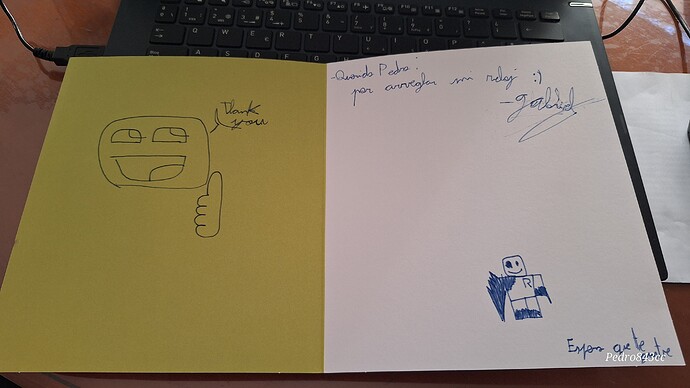 Thank
you
-Querido Pedro:
por arreglar mi reloj :)
-gabriel
R
Espero que te
Pedro843cc